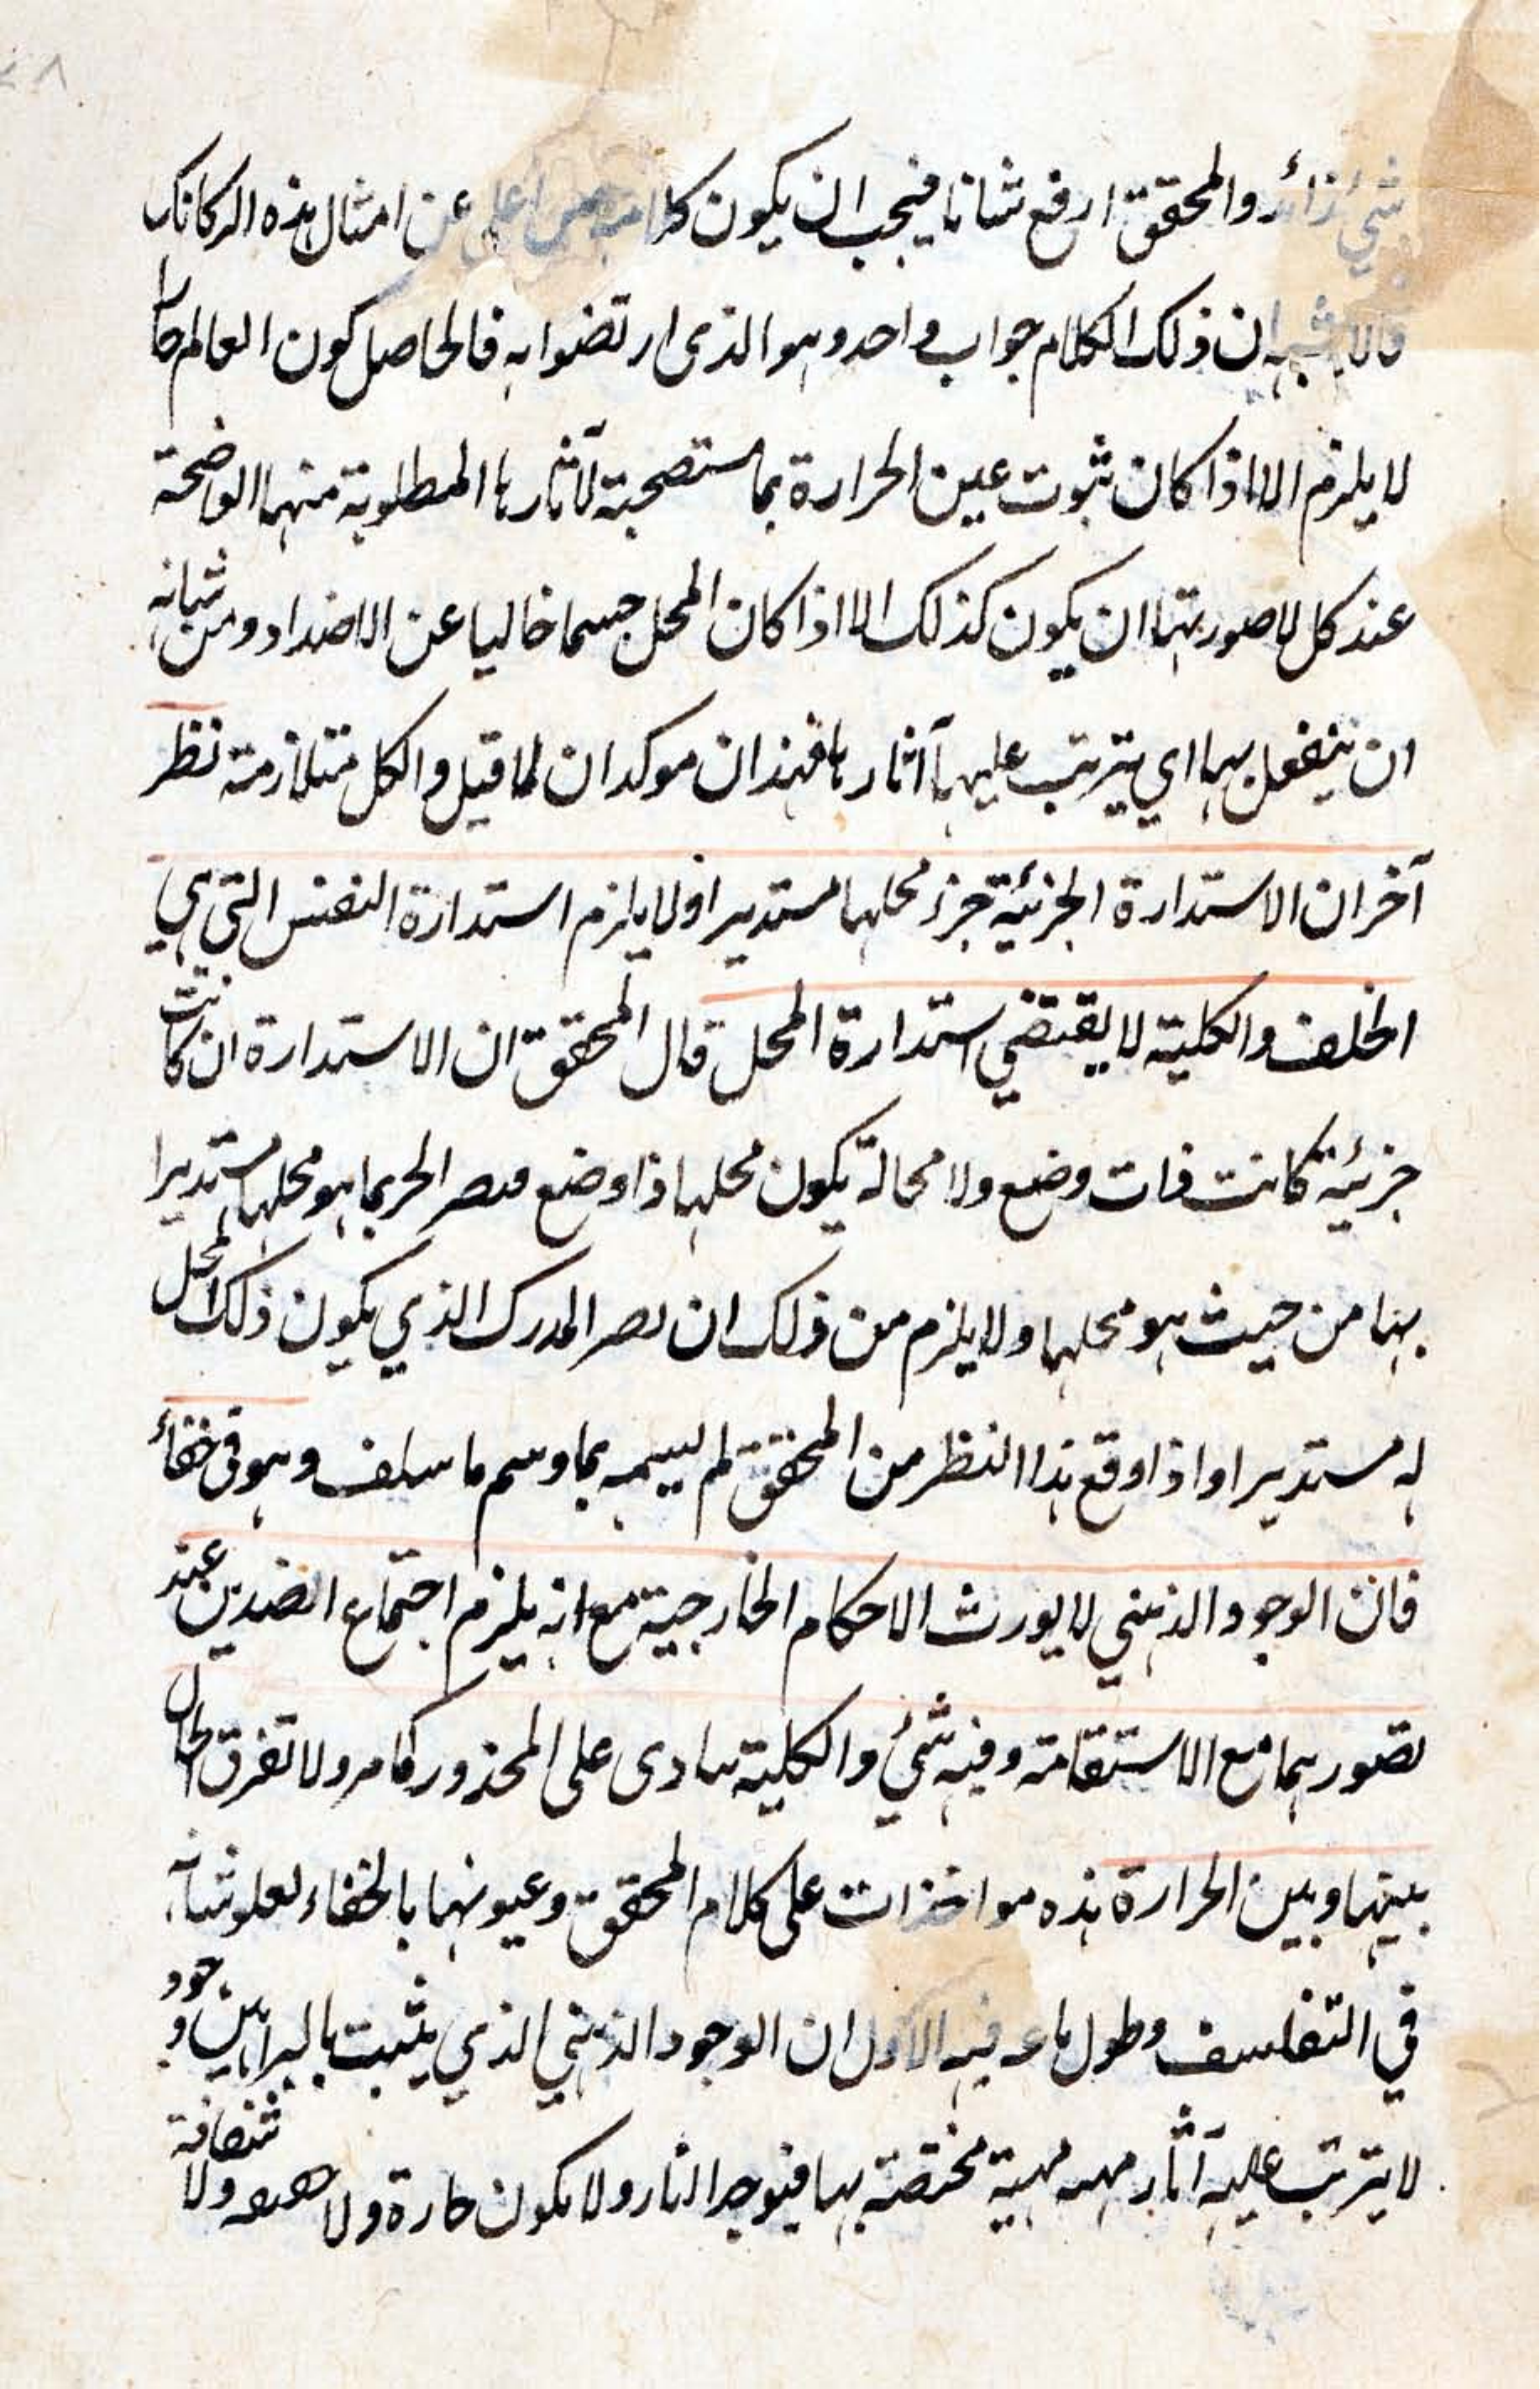 شيء زائد والمحقق ارفع شانا فيجب ان يكون اعلى عن امثال هذه الركاكات
ان ذلك الكلام جواب واحد وهو الذى ارتضوا به فالحاصل كون العالم حارا
لا يلزم الا اذا كان ثبوت عين الحرارة بما مستصحبة لآثارها المطلوبة منها الواضحة
عند كل لا صورتها ان يكون كذلك الا اذا كان المحل جسما خاليا عن الاضداد ومن شانه
ان ينفعل بها اي يترتب عليها آثارها فهذان موكدان لما قيل والكل متلازمة نظر
آخر ان الاستدارة الجزئية جزء محلها مستديرا ولا يلزم استدارة النفس التي هي
الخلف والكلية لا يقتضي استدارة المحل قال المحقق ان الاستدارة ان كانت
جزئية كانت ذات وضع ولا محالة يكون محلها ذا وضع هو محلها مستديرا
بها من حيث هو محلها ولا يلزم من ذلك ان المدرك الذي يكون ذلك المحل
له مستديرا واذا وقع هذا النظر من المحقق لم يسمه بما وسم ما سلف وهو في خفاء
فان الوجود الذهني لا يورث الاحكام الخارجية مع انه يلزم اجتماع الضدين عند
تصورهما مع الاستقامة وفيه شيء والكلية ىنادى على المحذور كما مر ولا تفرق الحال
بينها وبين الحرارة هذه مواخذات على كلام المحقق وعيونها بالخفاء لعلو شانه
في التفلسف وطول باعه فيه الاول ان الوجود الذهني الذي يثبت بالبراهين وجود
لا يترتب عليه آثار مهية مختصة بها فيوجد النار ولا يكون حارة ولا ولا